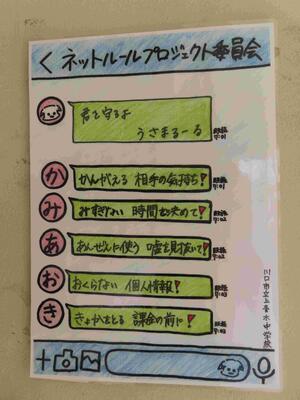 < ネットルールプロジェクト委員会
君を守るよ
うさまるーる
既読
7:01
か
かんがえる 相手の気持ち!
既読
7:01
み
みすぎない 時間を決めて!
既読
7:02
あ
あんぜんに使う 嘘を見抜いて!
既読
7:02
お
おくらない 個人情報!
既読
7:03
き
きょかをとる 課金の前に!
既読
7:03
川口市立上青木中学校